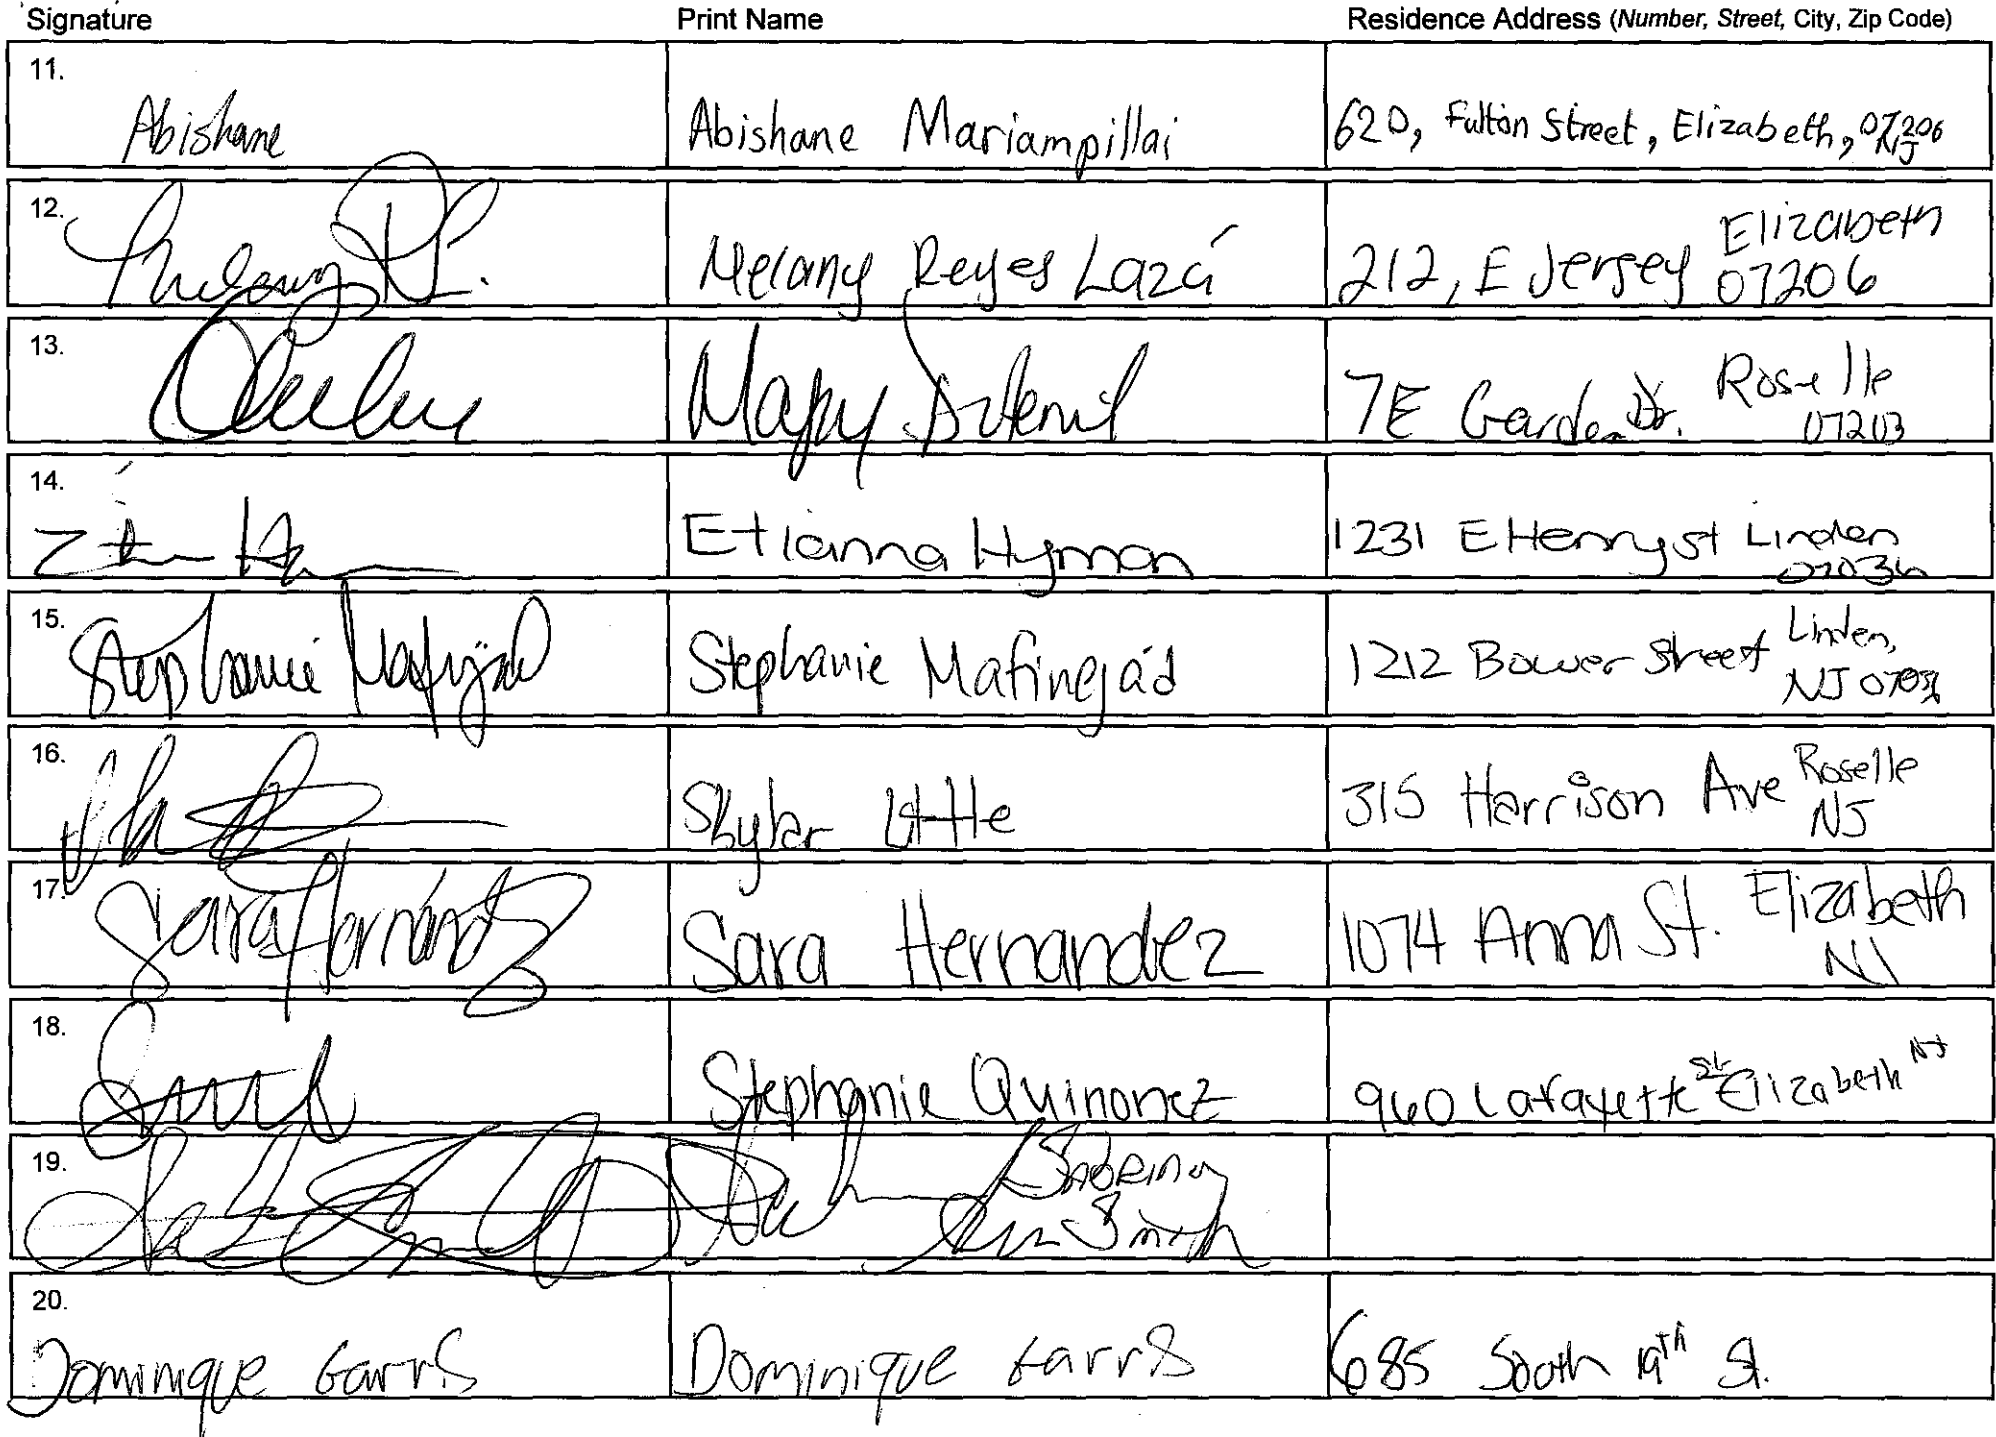 Signature Print Name Residence Address (Number, Street, City, Zip Code)
11. Abishane Abishane Mariampillai 620, Fulton Street, Elizabeth, 07206
NJ
12. Melany Reyes Lazá 212, E Jersey Elizabeth
07206
13. 7E Garden Dr. Roselle
07203
14. Etianna Hyman 1231 E Henry st Linden
07036
15. Stephanie Mafinejád Stephanie Mafinejád 1212 Bower Street Linden,
NJ 07036
16. Skylar Little 315 Harrison Ave Roselle
NJ
17. Sara Hernández Sara Hernandez 1074 Anna St. Elizabeth
NJ
18. Stephanie Quinonez 960 Lafayette St Elizabeth NJ
19. Sabrina
Smith
20. Dominique Garris Dominique Garris 685 South 19th St.